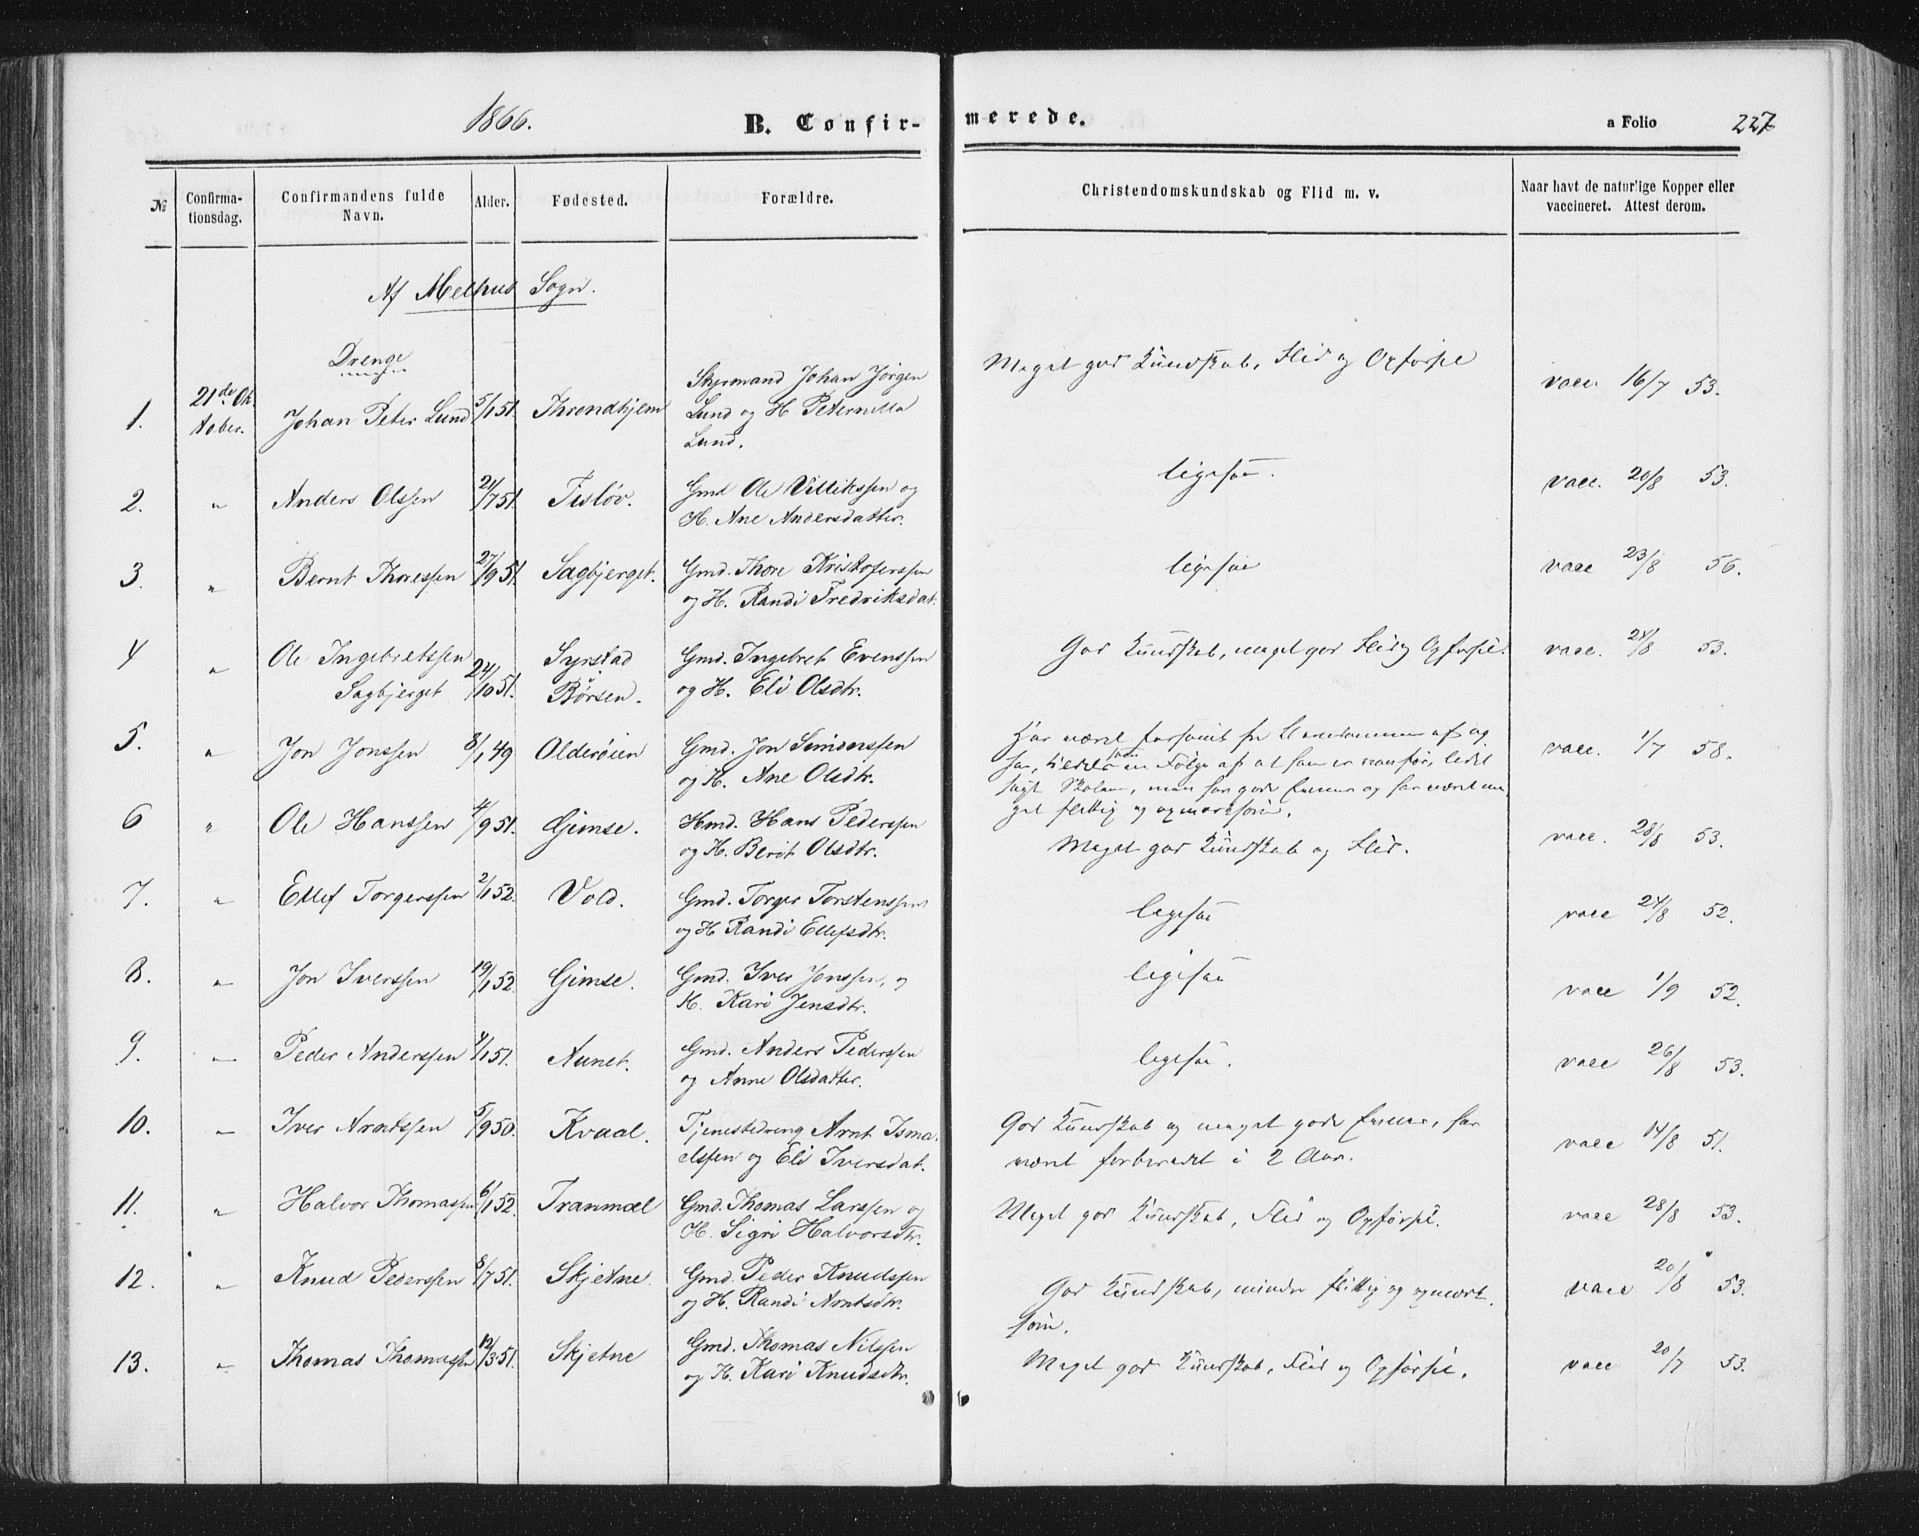 1866.
B. Confirmerede.
a Folio 227
№ Confirmationsdag. Confirmandens fulde Navn. Alder. Fødested. Forældre. Christendomskundskab og Flid m. v. Naar havt de naturlige Kopper eller vaccineret. Attest derom.
Af Melhus Sogn.
Drenge
1. 21de Oktober. Johan Peter Lund 5/1 51. Throndhjem Johan Jørgen Lund og H. Peternella Lund. Meget god Kundskab, Flid og Opførsel vacc. 16/7 53.
2. " Anders Olssen 21/7 51. Gmd Ole og H. Ane Andersdatter. ligesaa. vacc. 20/8 53.
3. " Bernt Thoressen 27/9 51. Sagbjerget. Gmd. Thore Kristofersen og H. Randi Fredriksdat. ligesaa vacc 23/8 56.
4 " Ole Ingebretssen Sagbjerget 24/10 51. Syrstad Børsen. Gmd. Ingebret Evenssen og H. Eli Olsdtr. God Kundskab, meget god Flid og Opførsel. vacc. 24/8 53.
5. " Jon Jonssen 8/1 49 Olderøien Gmd. Jon Simonssen og H. Ane Olsdtr. Har været forsømt fra Barndommen af og har, tildels som en Følge af at han er vanfør, lidet søgt Skolen, men har gode Evner og har været meget flittig og opmærksom. vacc. 1/7 58.
6 " Ole Hanssen 4/9 51. Gimse. Hmd. Hans Pederssen og H. Berit Olsdtr. Meget god Kundskab og Flid. vacc. 28/8 53.
7. " Ellef Torgerssen 2/1 52. Vold. Gmd. Torger Torstenssen og H Randi Ellefsdtr. ligesaa vacc 24/8 52.
8. " Jon Iverssen 19/1 52. Gimse. Gmd. Iver Jonssen, og H. Kari Jensdtr. ligesaa vacc 1/9 52.
9. " Peder Anderssen 4/1 51. Aunet. Gmd. Anders Pederssen og Anne Olsdatter. ligesaa. vacc 26/8 53.
10. " Iver Arntssen 5/9 50. Kvaal. Tjenestedreng Arnt Ismaelssen og Eli Iversdat. God Kundskab og meget gode Evner, har været forberedet i 2 Aar. vacc 14/8 51.
11. " Halvor Thomassen 6/1 52. Tranmæl Gmd. Thomas Larssen og H. Sigri Halvorsdtr. Meget god Kundskab, Flid og Opførsel. vacc 28/8 53.
12. " Knud Pederssen 8/7 51. Skjetne. Gmd. Peder Knudssen og H. Randi Arntsdtr. God Kundskab, mindre flittig og opmærksom. vacc 20/8 53.
13. " Thomas Thomassen 12/3 51. Skjetne Gmd. Thomas Nilssen og H. Kari Knudsdtr. Meget god Kundskab, Flid og Opførsel. vacc 20/7 53.